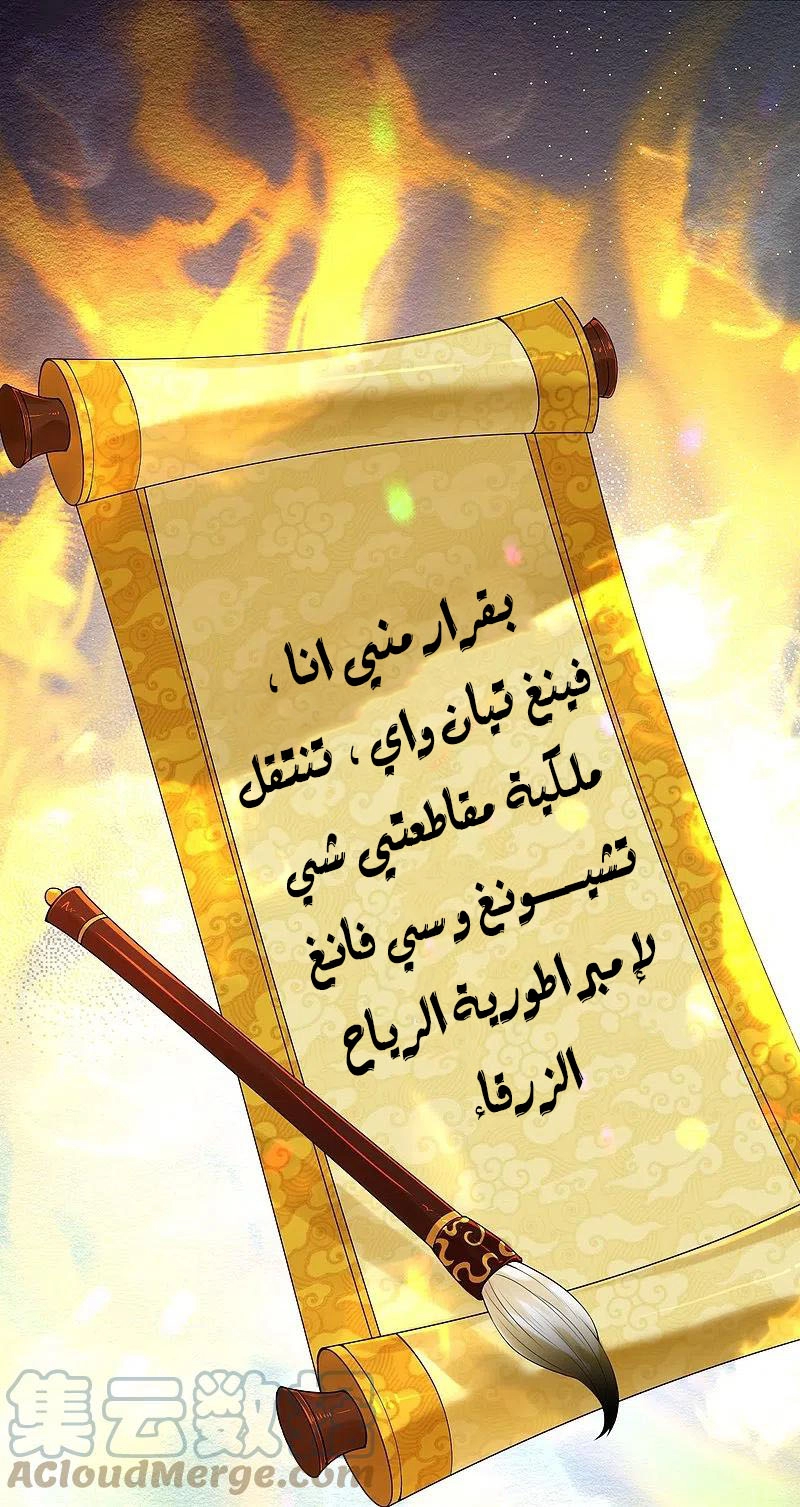 بقرار مني انا ،
فينغ تيان واي ، تنتقل
ملكية مقاطعتي شي
تشيـــونغ و سي فانغ
لإمبراطورية الرياح
الزرقاء
集云数据
ACloudMerge.com